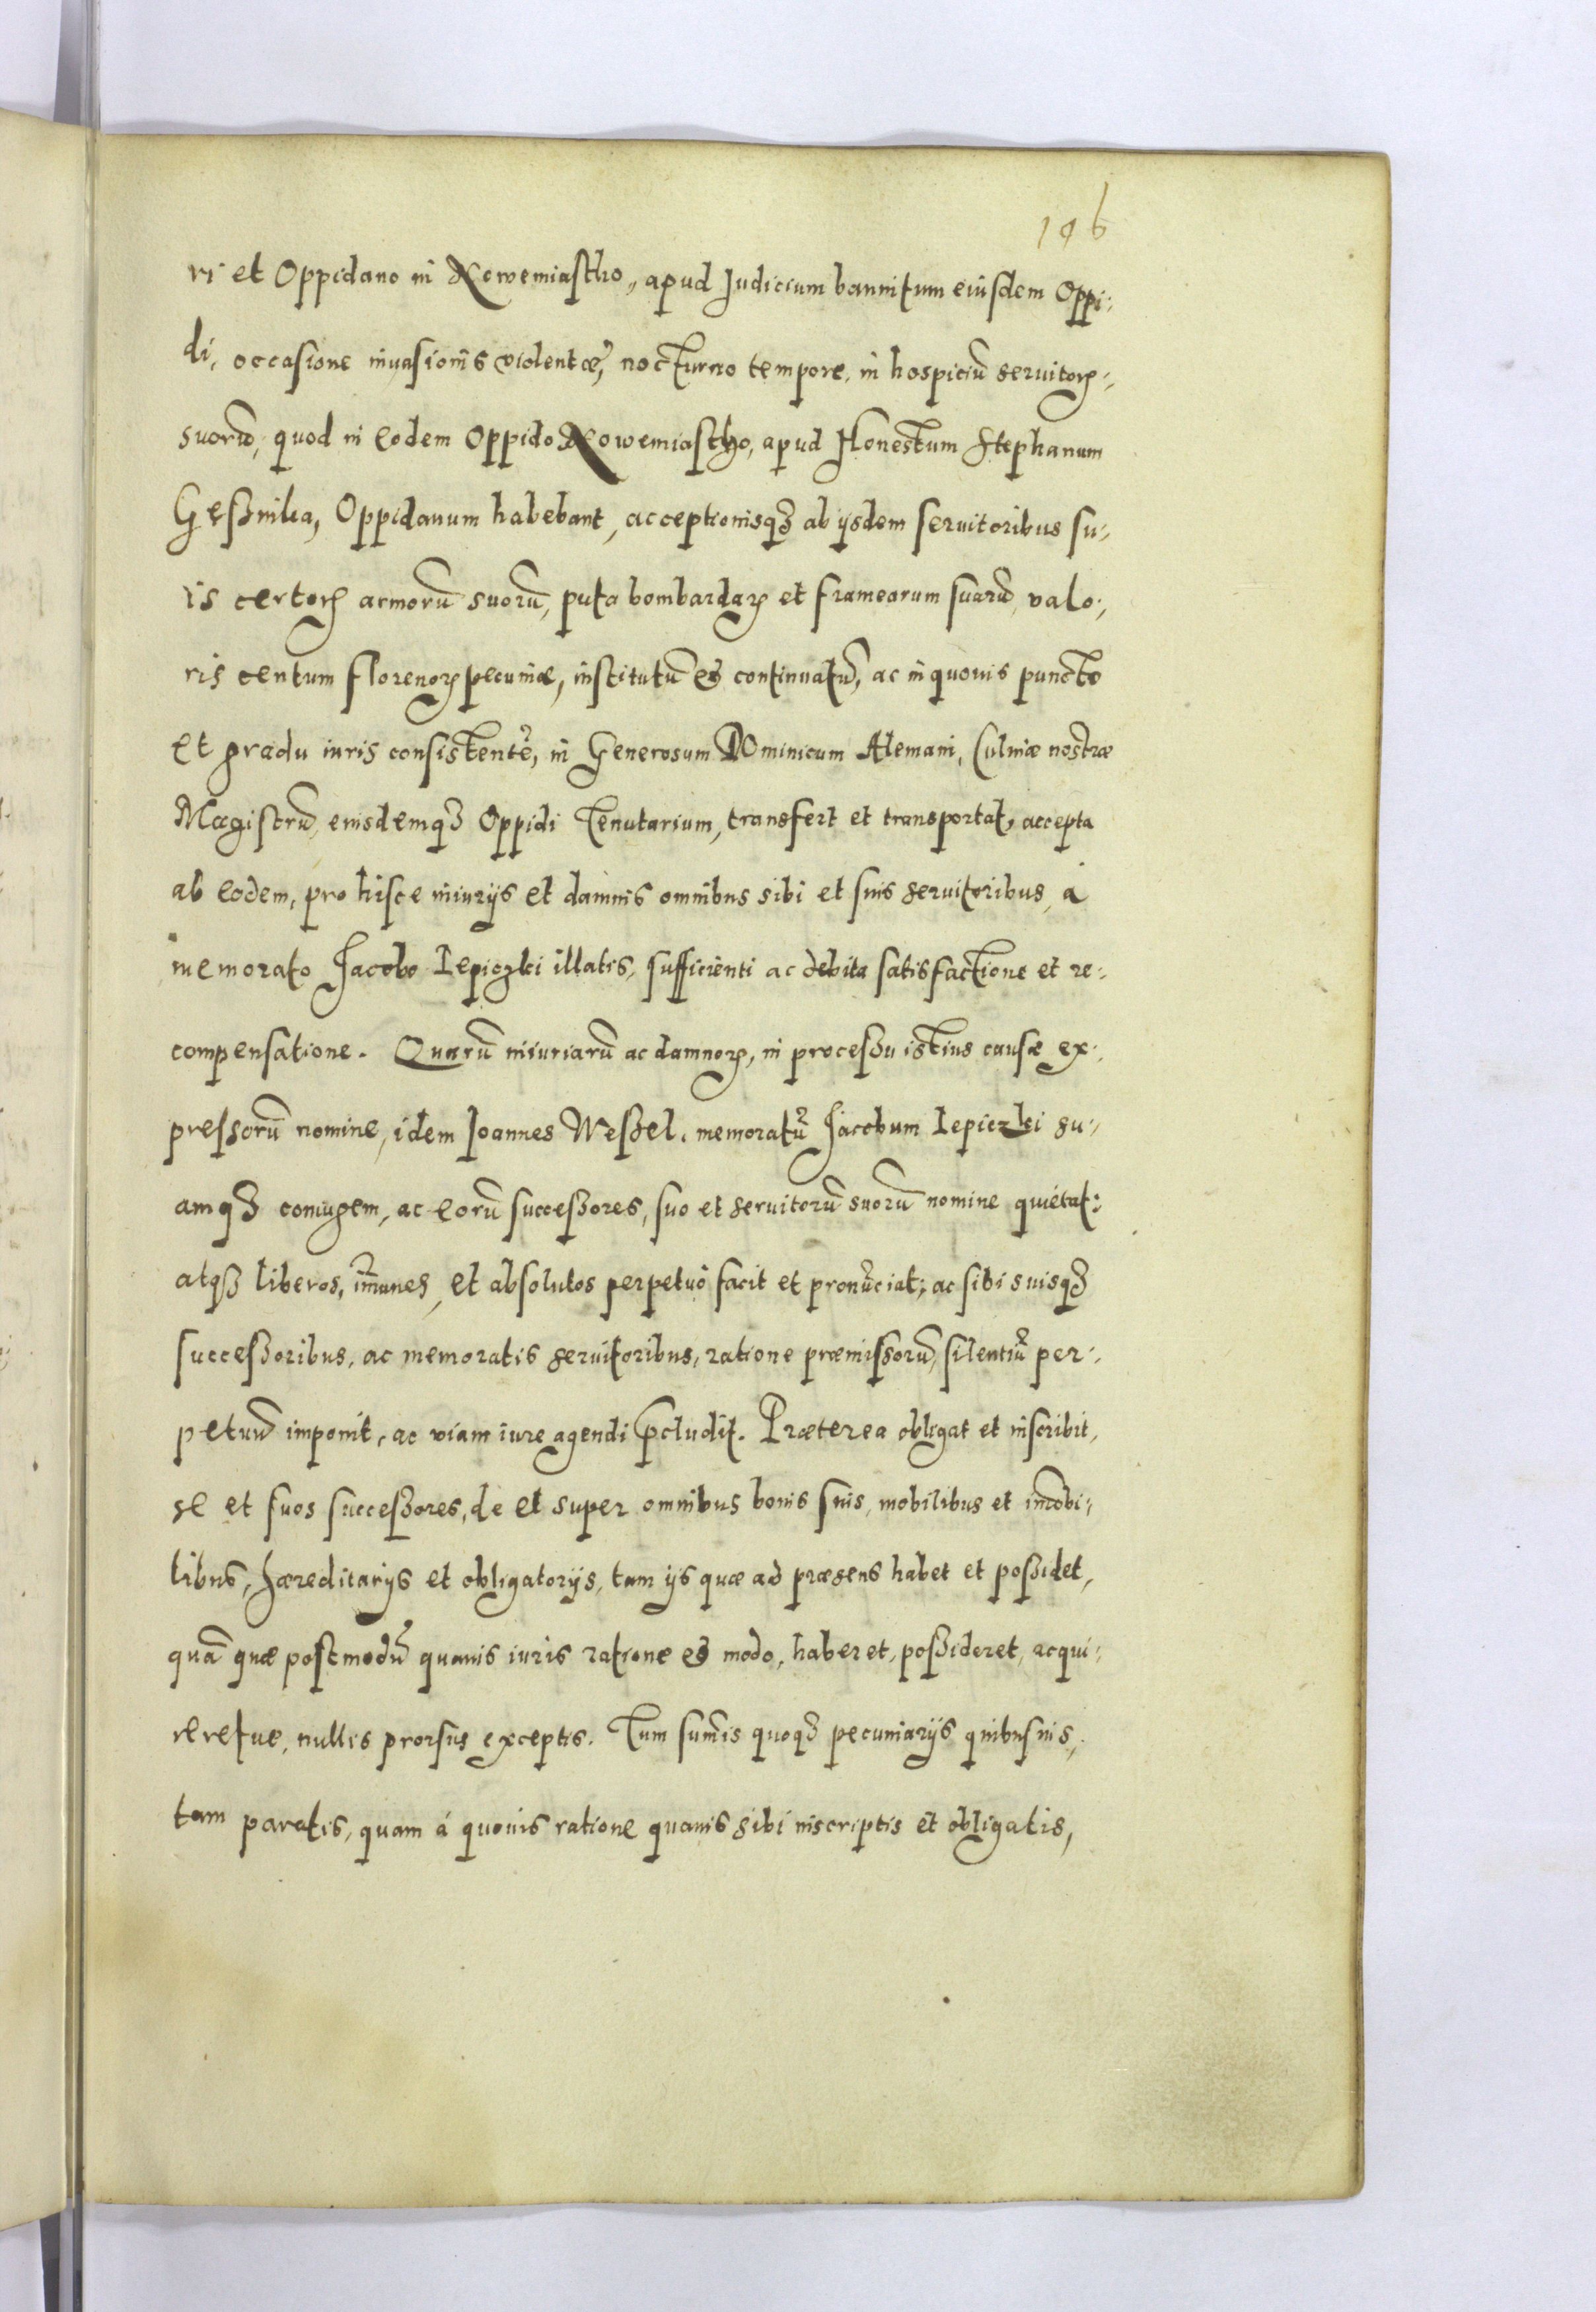 196
ri et Oppidano in Nowemiastho, apud Iudicium bannitum eiusdem Oppi-
di, occasione inuasionis violentæ, nocturno tempore, in hospiciũ seruitorꝝ
suorũ, quod in eodem Oppido Nowemiastho, apud Honestum Stephanum
Gęsznika, Oppidanum habebant, acceptionisqꝫ ab ijsdem seruitoribus su-
is certorꝝ armorũ suorũ, puta bombardarꝝ et framearum suarũ, valo-
ris centum florenorꝝ pecuniæ, institutũ & continuatũ, ac in quouis puncto
et gradu iuris consistentẽ, in Generosum Dominicum Alemani, Culinæ nostræ
Magistrũ, eiusdemqꝫ Oppidi Tenutarium, transfert et transportat, accepta
ab eodem, pro hisce iniurijs et damnis omnibus sibi et suis seruitoribus, à
memorato Jacobo Lepiczki illatis, sufficienti ac debita satisfactione et re-
compensatione. Quarũ iniuriarũ ac damnorꝝ, in processu istius causæ ex-
pressorũ nomine, idem Joannes Weszel, memoratũ Jacobum Lepiczki su-
amqꝫ coniugem, ac eorũ successores, suo et seruitorũ suorũ nomine quietat:
atqꝫ liberos, im̃unes, et absolutos perpetuò facit et pronũciat; ac sibi suisqꝫ
successoribus, ac memoratis seruitoribus, ratione præmissorũ, silentiũ per-
petuũ imponit, ac viam iure agendi p̃cludit. Præterea obligat et inscribit,
se et suos successores, de et super omnibus bonis suis, mobilibus et im̃obi-
libus, hæreditarijs et obligatorijs, tam ijs quæ ad præsens habet et possidet,
quã quæ postmodũ quauis iuris ratione & modo, haberet, possideret, acqui-
reretue, nullis prorsus exceptis. Tum sum̃is quoqꝫ pecuniarijs quibusuis,
tam paratis, quam à quouis ratione quauis sibi inscriptis et obligatis,